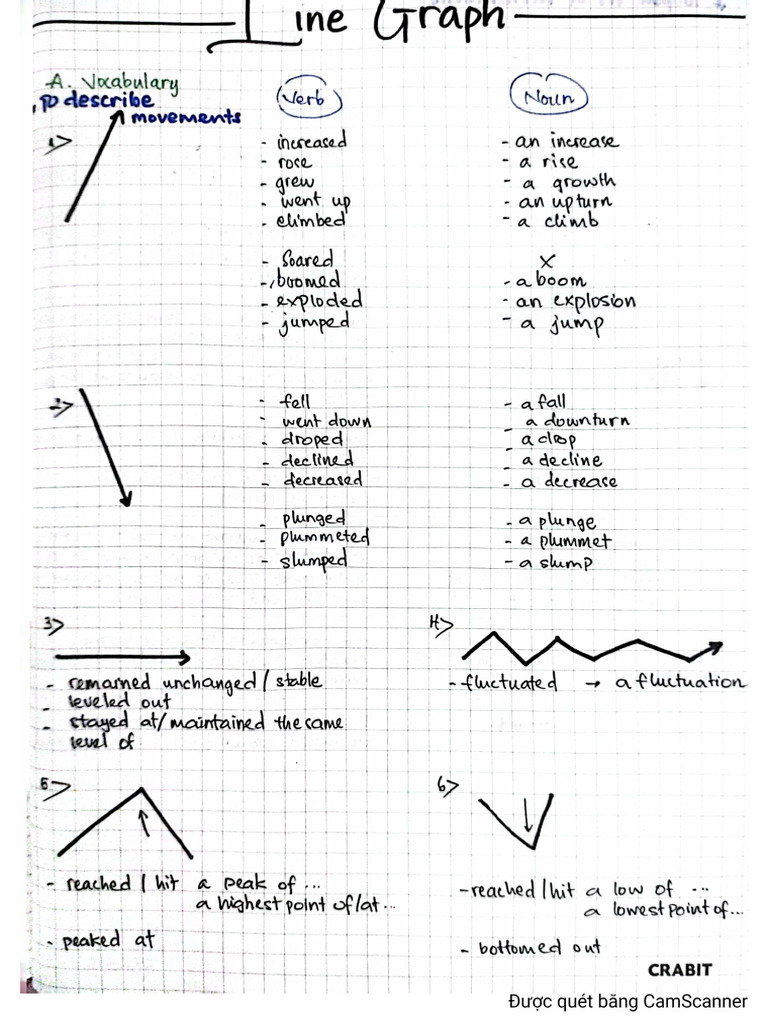 Line Graph
A. Vocabulary
to describe
movements
Verb
Noun
1>
- increased
- an increase
- rose
- a rise
- grew
- a growth
- went up
- an upturn
- climbed
- a climb
- Soared
X
- boomed
- a boom
- exploded
- an explosion
- jumped
- a jump
2>
- fell
- a fall
- went down
- a downturn
- droped
- a drop
- declined
- a decline
- decreased
- a decrease
- plunged
- a plunge
- plummeted
- a plummet
- slumped
- a slump
3>
- remained unchanged / stable
- leveled out
- stayed at/maintained the same
level of
4>
- fluctuated → a fluctuation
5>
- reached / hit a peak of ...
a highest point of/at...
- peaked at
6>
- reached/hit a low of ...
a lowest point of...
- bottomed out
CRABIT
Được quét bằng CamScanner